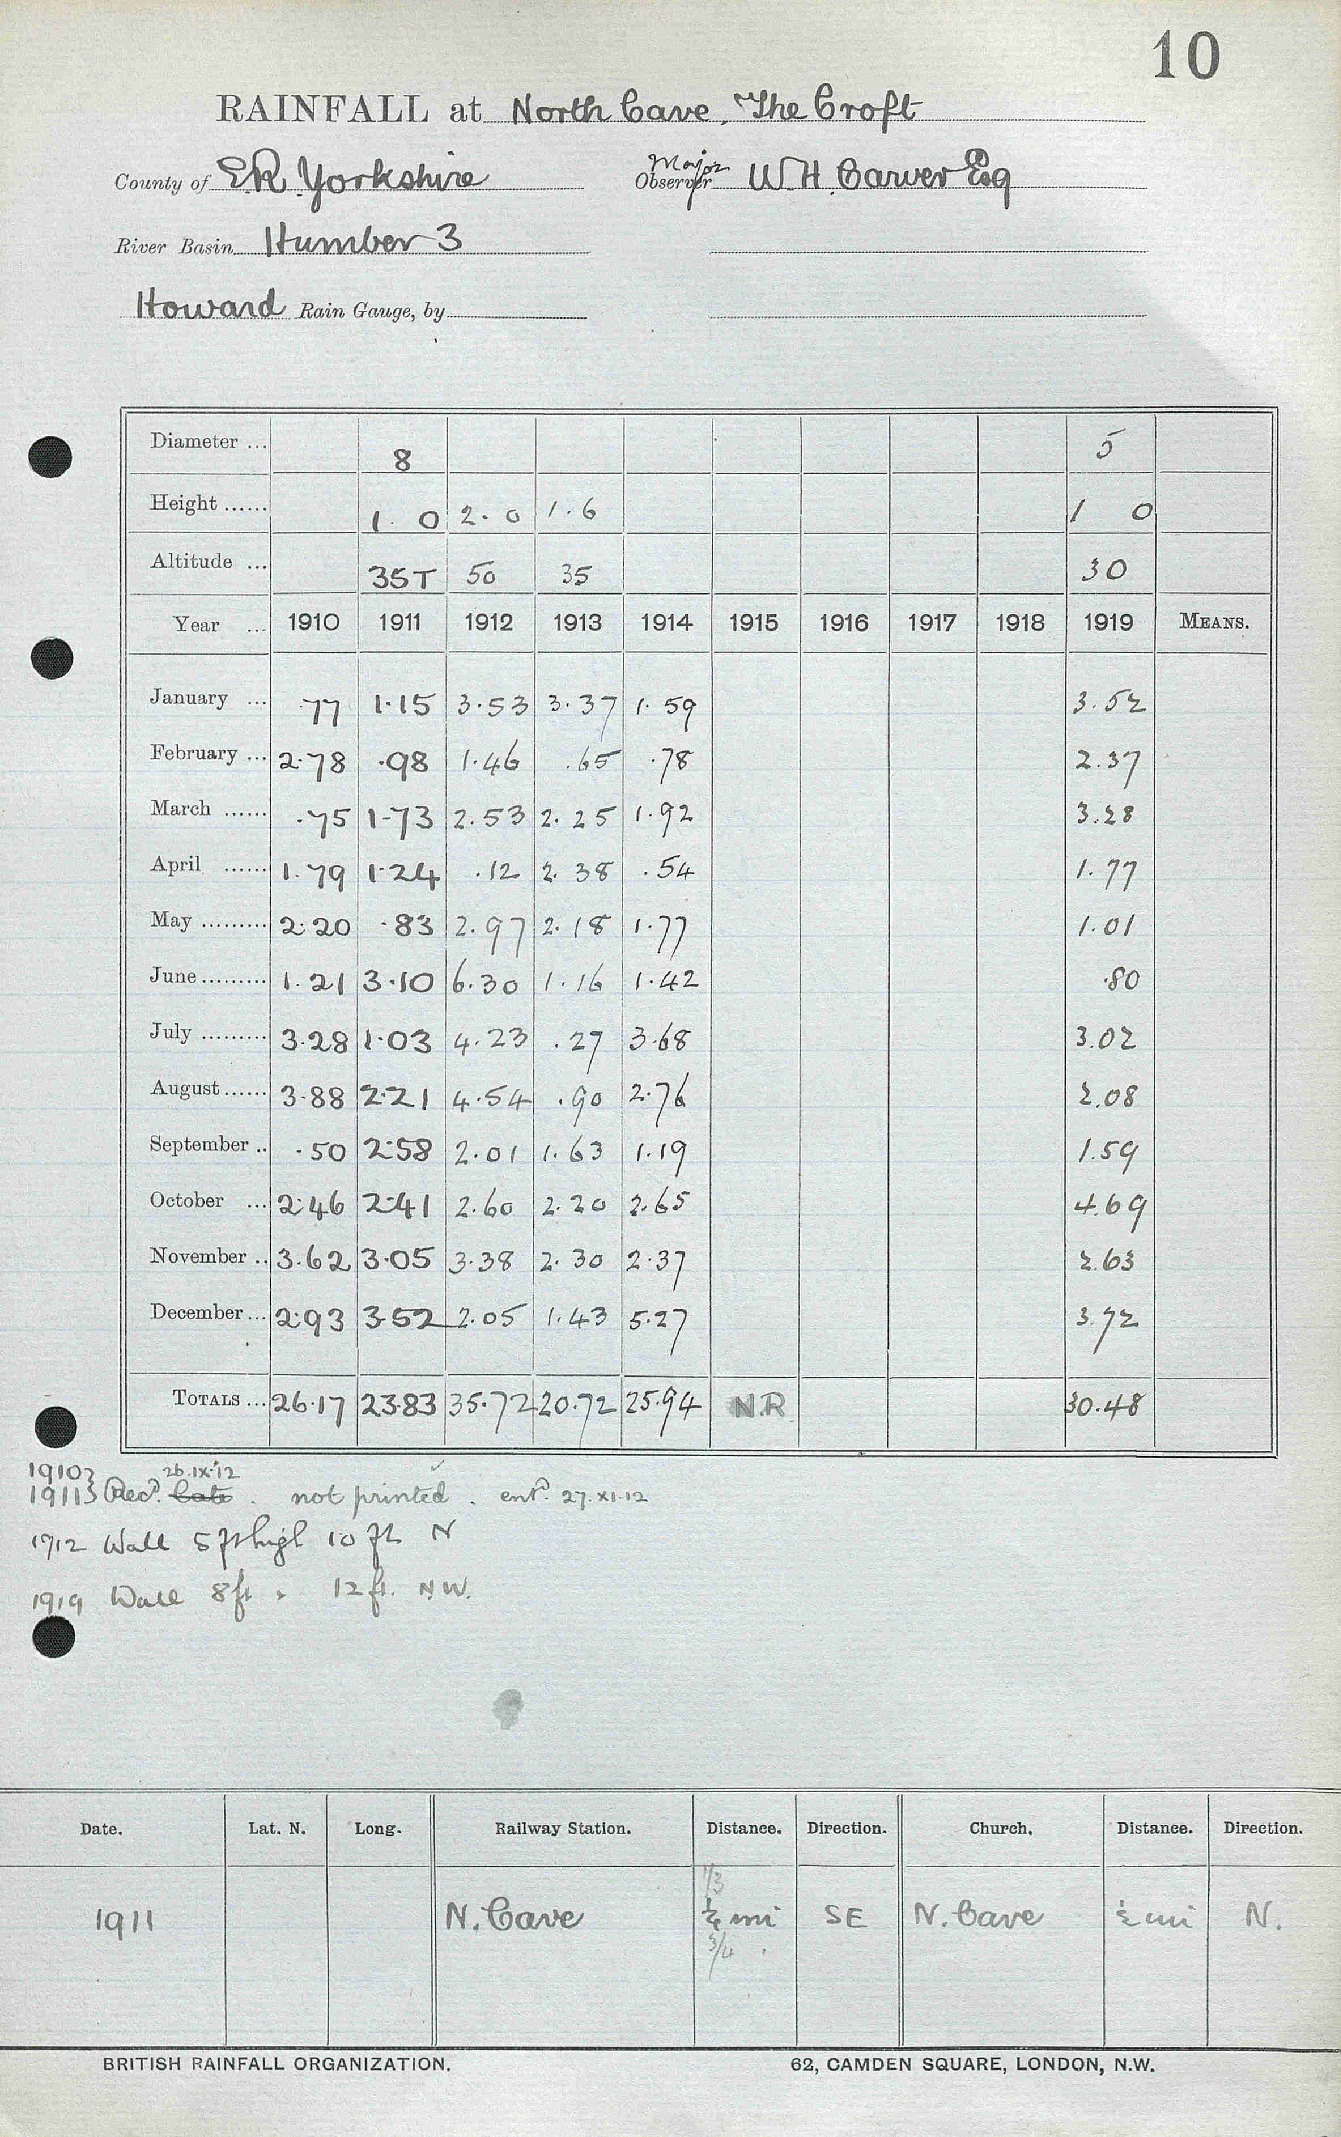 10
RAINFALL at North Cave, The Croft
County of ER Yorkshire Major Observer W H Carver Esq
River Basin Humber 3
Howard Rain Gauge, by
Diameter ... 8 5
Height ...... 1. 0 2. 0 1.6 1 0
Altitude ... 35T 50 35 30
Year ... 1910 1911 1912 1913 1914 1915 1916 1917 1918 1919 MEANS.
January ... .77 1.15 3.53 3.37 1.59 3.52
February ... 2.78 .98 1.46 .65 .78 2.37
March ...... .75 1.73 2.53 2.25 1.92 3.28
April ...... 1.79 1.24 .12 2.38 .54 1.77
May ......... 2.20 .83 2.97 2.18 1.77 1.01
June ......... 1.21 3.10 6.30 1.16 1.42 .80
July ......... 3.28 1.03 4.23 .27 3.68 3.02
August ...... 3.88 2.21 4.54 .90 2.76 2.08
September .. .50 2.58 2.01 1.63 1.19 1.59
October ... 2.46 2.41 2.60 2.20 2.65 4.69
November .. 3.62 3.05 3.38 2.30 2.37 2.63
December ... 2.93 3.52 2.05 1.43 5.27 3.72
TOTALS ... 26.17 23.83 35.72 20.72 25.94 N.R 30.48
1910 } 26.IX.'12
1911 } Recd. Late . not printed . entd. 27.XI.12
1912 Wall 5 ft high 10 ft N
1919 Wall 8 ft " 12 ft. N.W.
Date. Lat. N. Long. Railway Station. Distance. Direction. Church. Distance. Direction.
1/3
1911 N. Cave ½ mi SE N. Cave ½ mi N.
3/4 .
BRITISH RAINFALL ORGANIZATION. 62, CAMDEN SQUARE, LONDON, N.W.